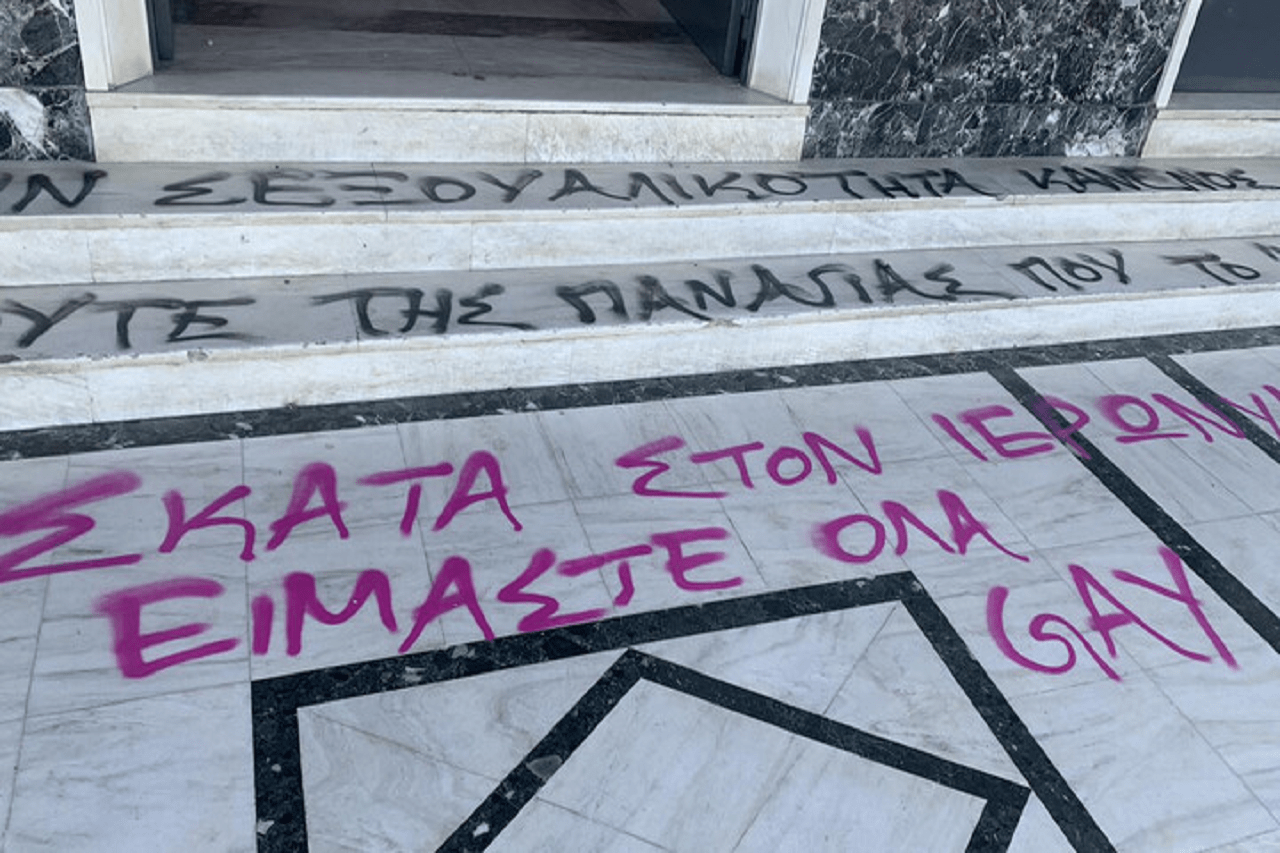 ΣΕΞΟΥΑΛΙΚΟΤΗΤΑ ΚΑΝΕΝΟΣ
ΤΗΣ ΠΑΝΑΓΙΑΣ ΠΟΥ ΤΟ
ΣΚΑΤΑ ΣΤΟΝ
ΕΙΜΑΣΤΕ ΟΛΑ
GAY